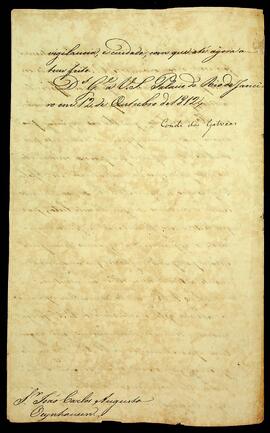 vigilancia, e cuidado, com que até agora o
tem feito.
D.s G.e a V.S. Palacio do Rio de Janei
ro em 12 de Outubro de 1812,,
Conde das Galvêas
S.r João Carlos Augusto
Oeynhausen